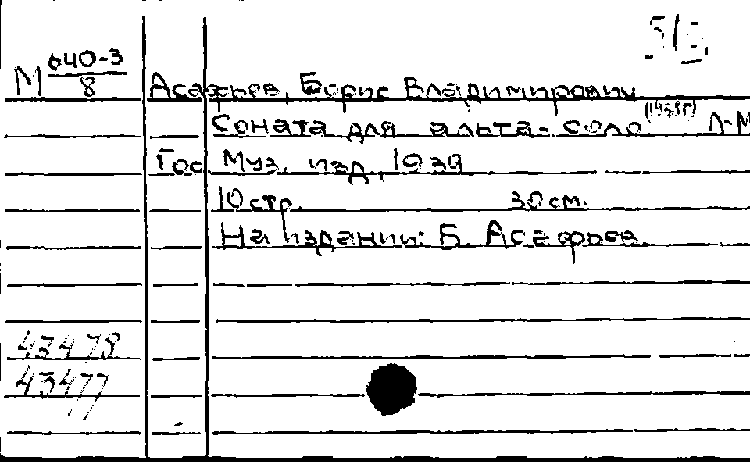 М 640-3
8
Асафьев, Борис Владимирович
Соната для альта-соло (1938г) Л-М
Гос Муз. изд., 1939
10 стр. 30 см.
На издании: Б. Асафьев.
43478
43477